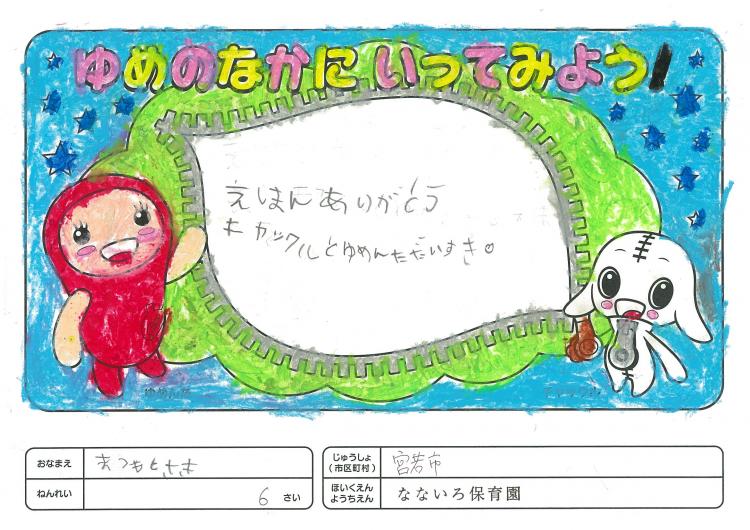 ゆめのなかにいってみよう!
えほんありがとう
キカックルとゆめんただいすき。
おなまえ
まつもとさき
ねんれい
6 さい
じゅうしょ
(市区町村)
宮若市
ほいくえん
ようちえん
なないろ保育園